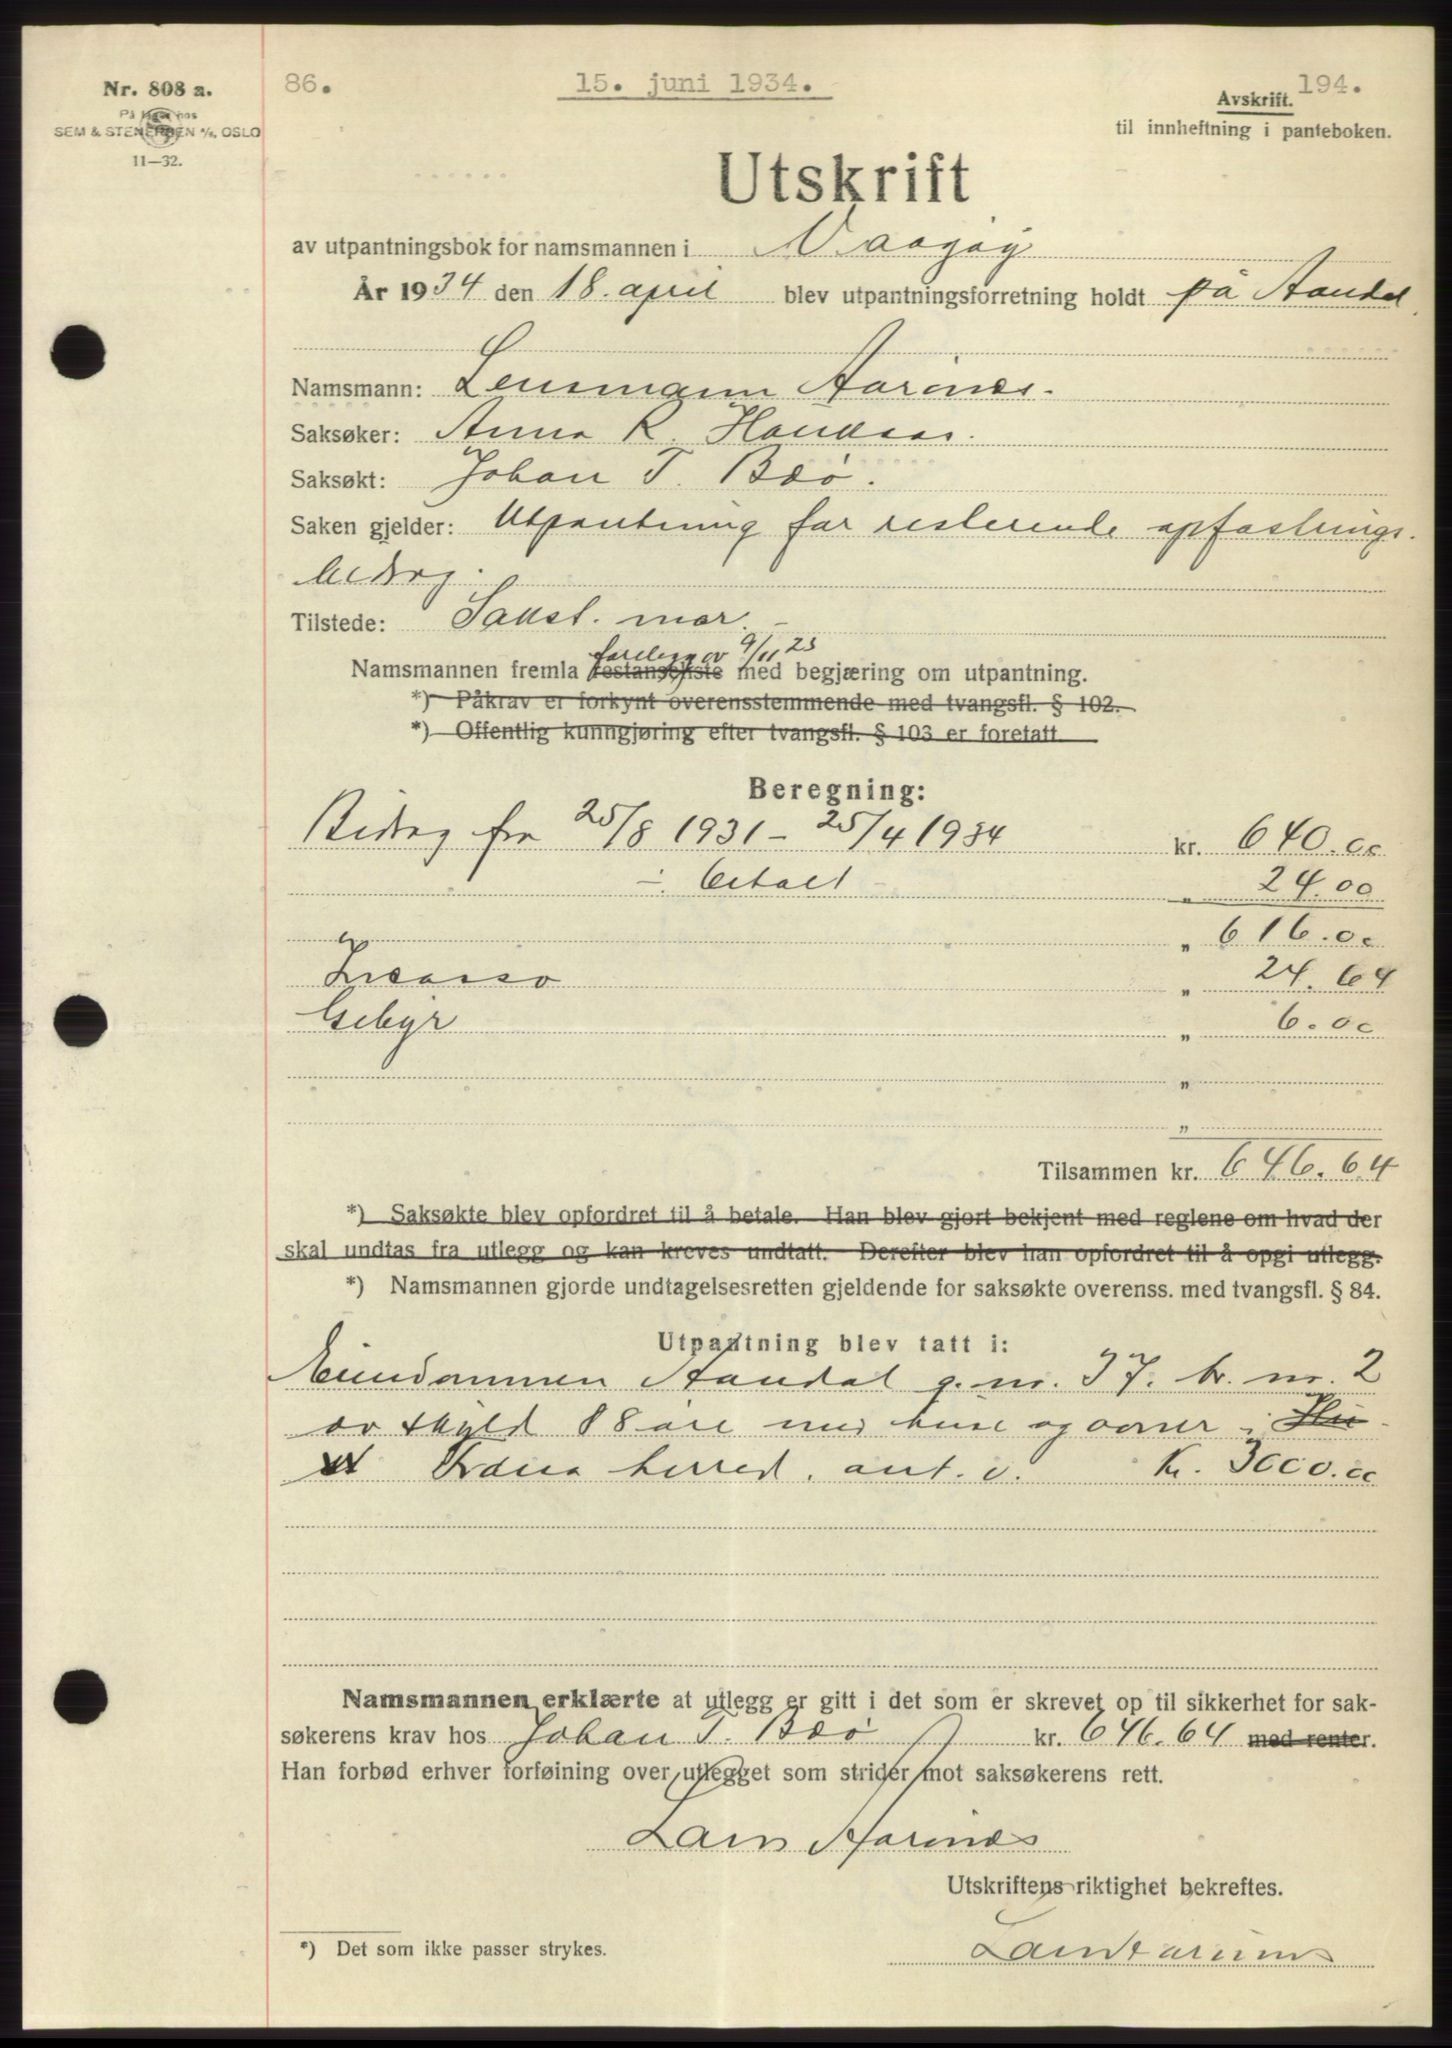 Nr. 808 a.
På lager hos
SEM & STENERSEN A/S, OSLO
11—32.
86. 15. juni 1934. 194.
Avskrift.
til innheftning i panteboken.
Utskrift
av utpantningsbok for namsmannen i Vaagøy
År 1934 den 18. april blev utpantningsforretning holdt på Aandal.
Namsmann: Lensmann Aarinæs.
Saksøker: Anna R.
Saksøkt: Johan T. Bæø.
Saken gjelder: Utpantning for resterende opfostrings-
bidrag.
Tilstede: Sakst. mor.
forelegg av 9/11 23
Namsmannen fremla restanseliste med begjæring om utpantning.
*) Påkrav er forkynt overensstemmende med tvangsfl. § 102.
*) Offentlig kunngjøring efter tvangsfl. § 103 er foretatt
Beregning:
Bidrag fra 25/8 1931 – 25/4 1934 kr. 640.00
÷ betalt „ 24.00
„ 616.00
Incasso „ 24.64
Gebyr „ 6.00
„
„
Tilsammen kr. 646.64
*) Saksøkte blev opfordret til å betale. Han blev gjort bekjent med reglene om hvad der
skal undtas fra utlegg og kan kreves undtatt. Derefter blev han opfordret til å opgi utlegg.
*) Namsmannen gjorde undtagelsesretten gjeldende for saksøkte overenss. med tvangsfl. § 84.
Utpantning blev tatt i:
Eiendommen Aandal g. nr. 37. br. nr. 2
av skyld 88 øre med huse og over i Hu
st Fræna herred. ant. v. kr. 3000.00
Namsmannen erklærte at utlegg er gitt i det som er skrevet op til sikkerhet for sak-
søkerens krav hos Johan T. Bæø kr. 646.64 med renter.
Han forbød erhver forføining over utlegget som strider mot saksøkerens rett.
Lars Aarinæs
Utskriftens riktighet bekreftes.
*) Det som ikke passer strykes.
Lars Aarinæs